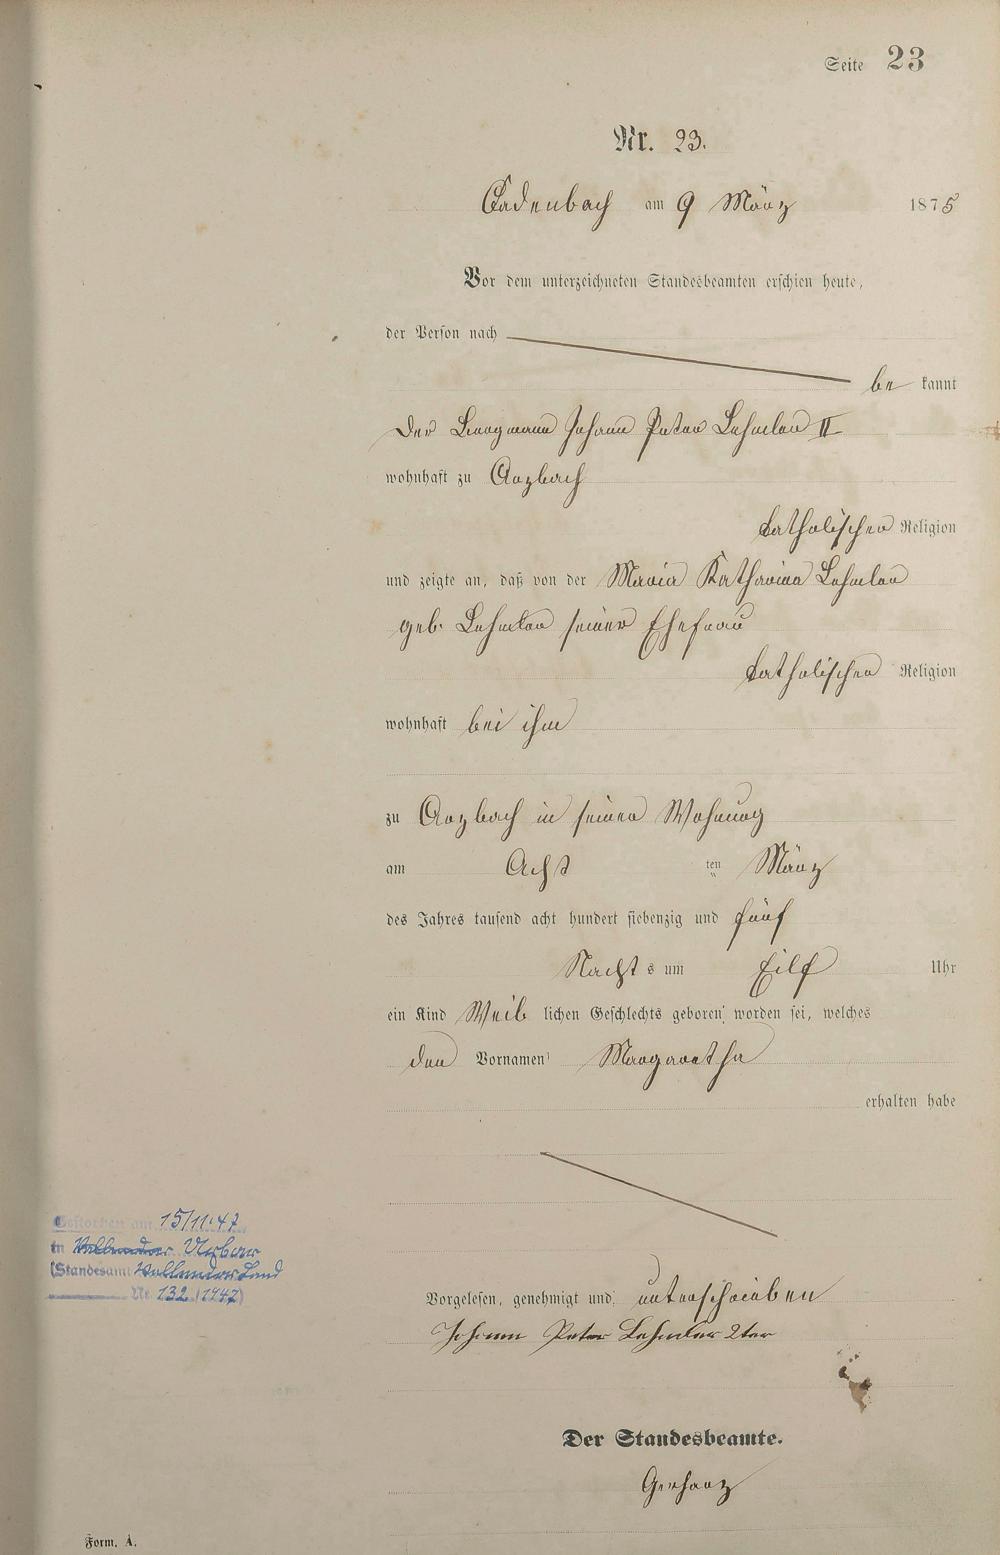 Seite 23
Nr. 23.
Cadenbach am 9 März 1875
Vor dem unterzeichneten Standesbeamten erschien heute,
der Person nach
be kannt
der Bergmann Johann Peter Lehmler II
wohnhaft zu Arzbach
katholischer Religion
und zeigte an, daß von der Maria Katharina Lehmler
geb. Lehmler seiner Ehefrau
katholischer Religion
wohnhaft bei ihm
zu Arzbach in seiner Wohnung
am Acht ten März
des Jahres tausend acht hundert siebenzig und fünf
Nacht s um Eilf Uhr
ein Kind Weib lichen Geschlechts geboren worden sei, welches
den Vornamen Margaretha
erhalten habe
Gestorben am 15/11.47
in Vallendar Urbar
(Standesamt Vallendar Land
Nr. 132 (1947)
Vorgelesen, genehmigt und unterschrieben
Johann Peter Lehmler 2ter
Der Standesbeamte.
Gerharz
Form. A.